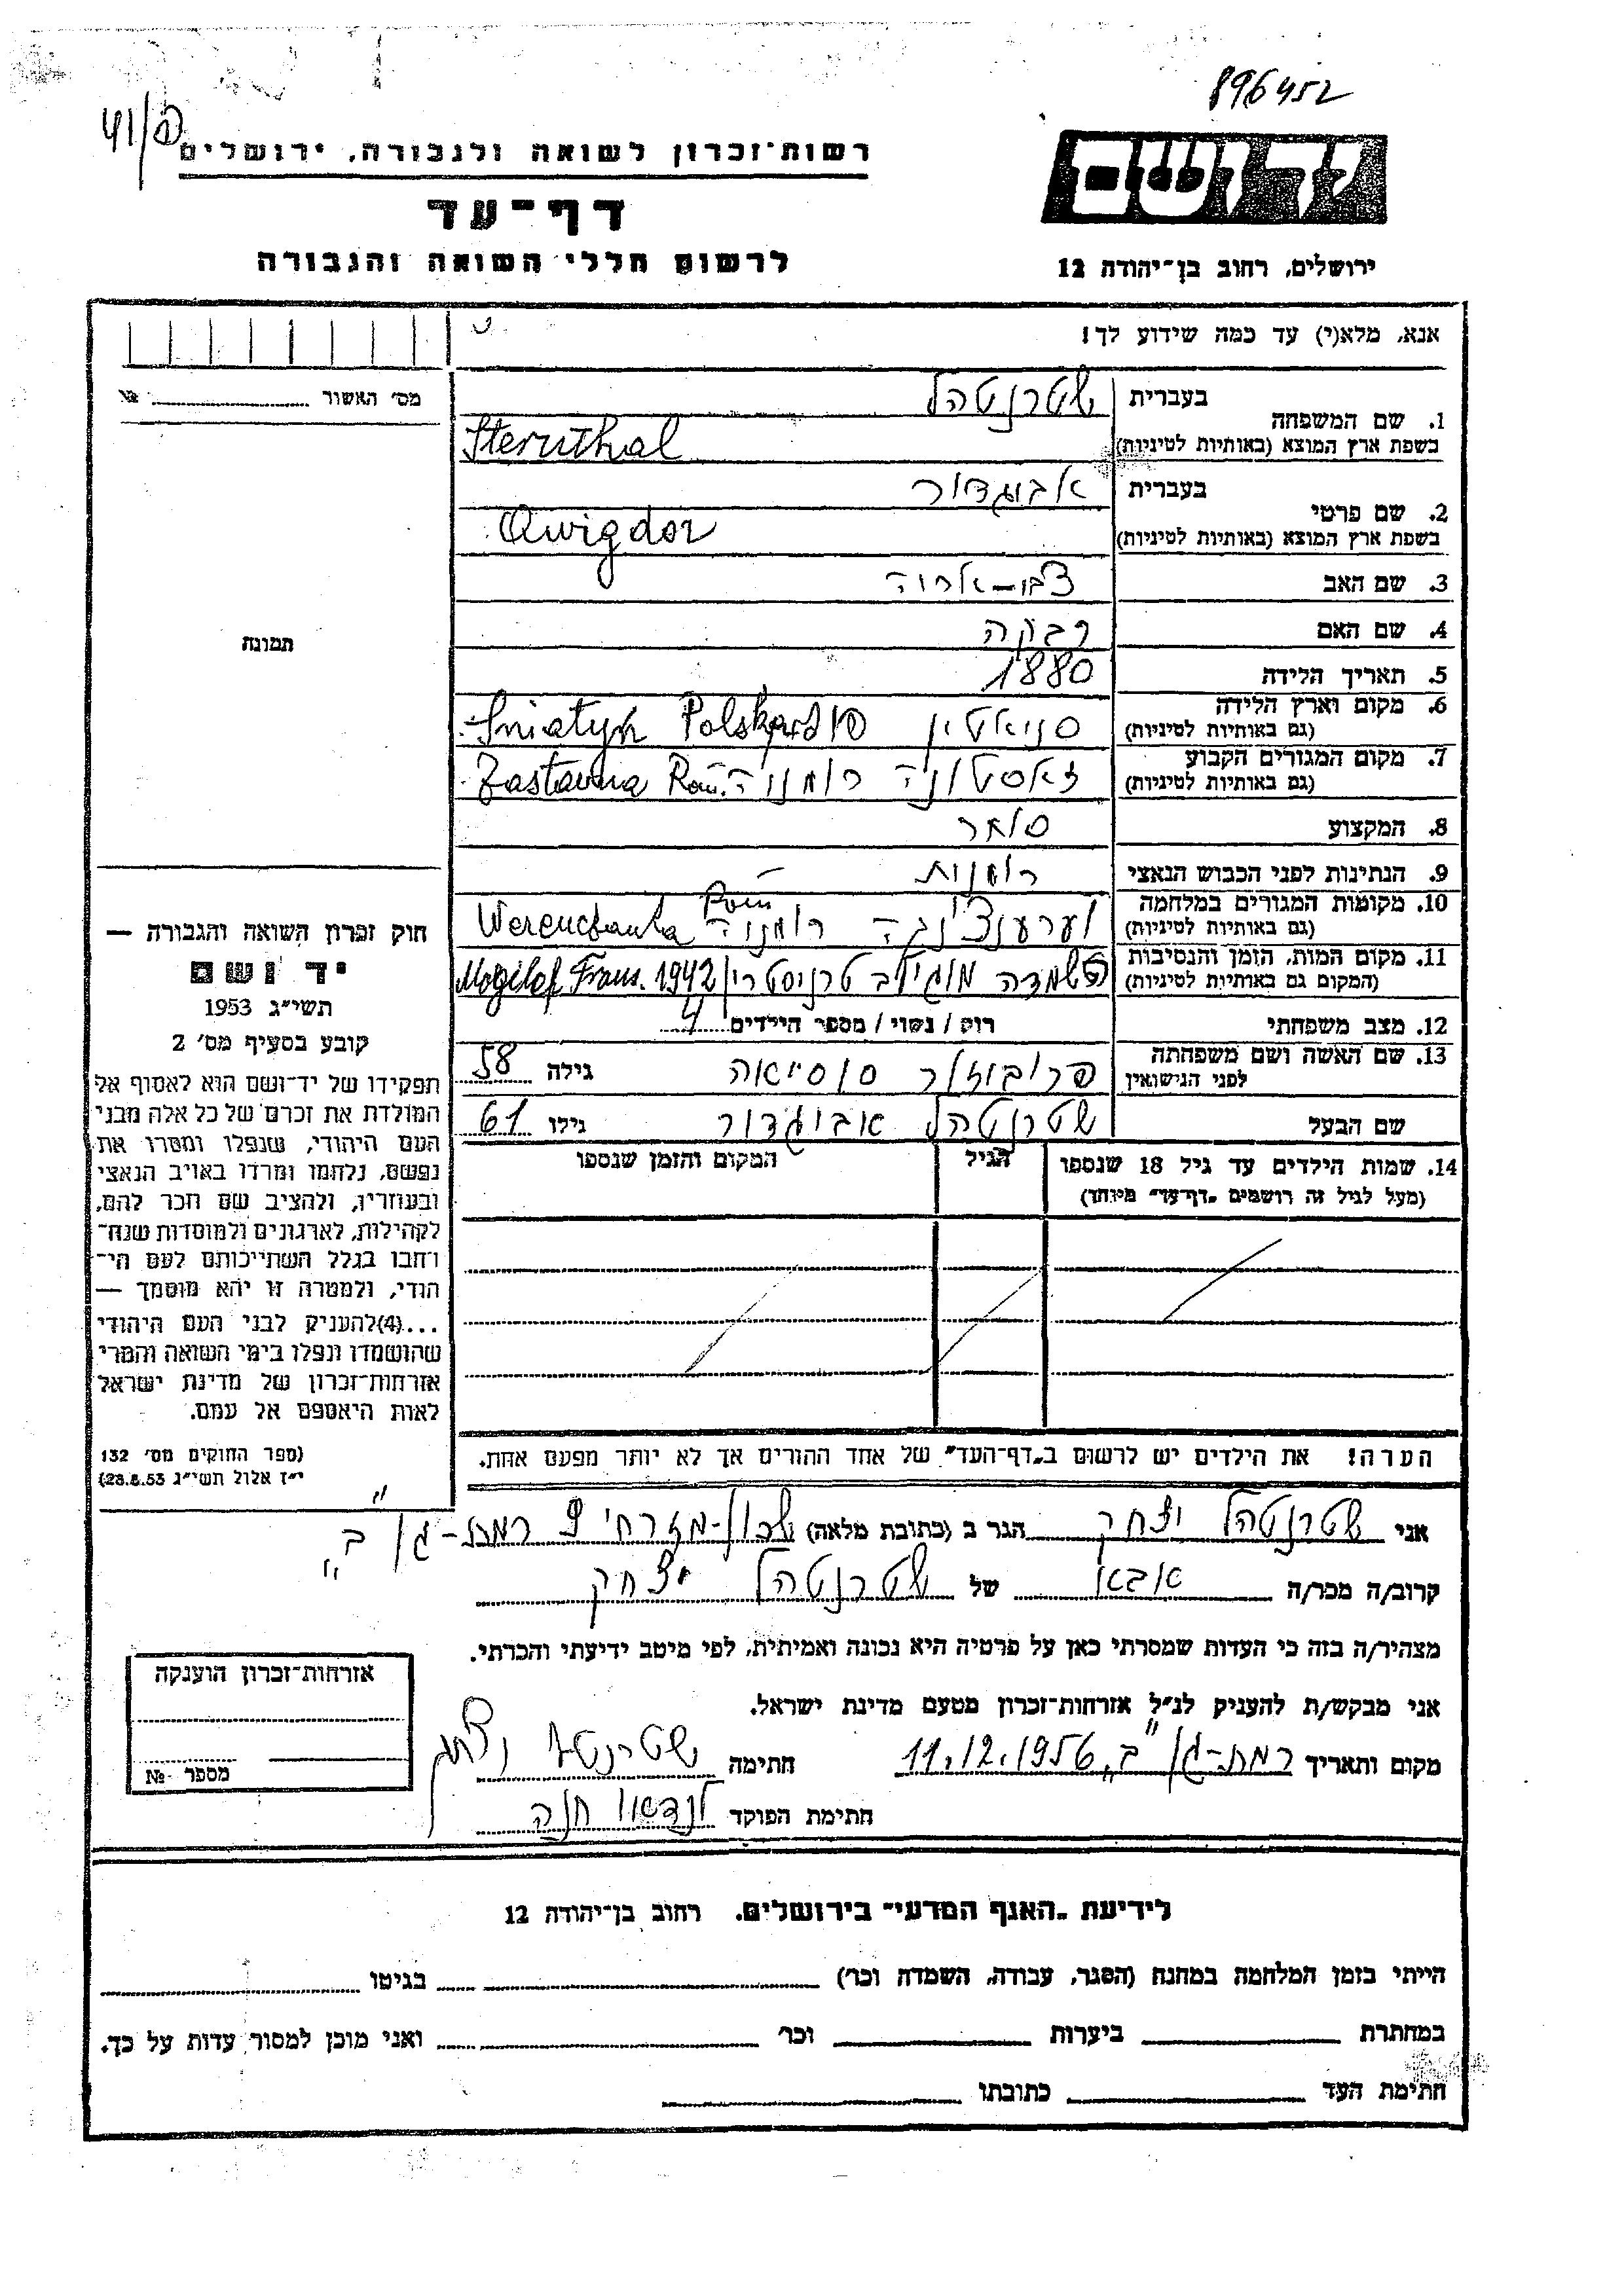 896452
41/
רשות־זכרון לשואה ולגבורה, ירושלים
דף־עד
לרשום חללי השואה והגבורה
יד ושם
ירושלים, רחוב בן־יהודה 12
אנא, מלא(י) עד כמה שידוע לך!
מס׳ האשור № ..........
1. שם המשפחה
בעברית שטרנטהל
בשפת ארץ המוצא (באותיות לטיניות) Sternthal
2. שם פרטי
בעברית אבוגדור
בשפת ארץ המוצא (באותיות לטיניות) Awigdor
3. שם האב צבי-אריה
4. שם האם רבקה
5. תאריך הלידה 1880
6. מקום וארץ הלידה
(גם באותיות לטיניות) סניאטין Sniatyn Polska
7. מקום המגורים הקבוע
(גם באותיות לטיניות) זאסטונה רומניה Zastawna Rom.
8. המקצוע סוחר
9. הנתינות לפני הכבוש הנאצי רומנית
10. מקומות המגורים במלחמה
(גם באותיות לטיניות) ווערענצ'נקה רומניה Werenchanka Rom
11. מקום המות, הזמן והנסיבות
(המקום גם באותיות לטיניות) מוגילב טרניסטרי Mogilef Trans. 1942
12. מצב משפחתי רווק / נשוי / מספר הילדים 4
13. שם האשה ושם משפחתה
לפני הנישואין סוסיאה גילה 58
שם הבעל שטרנטהל אבוגדור גילו 61
14. שמות הילדים עד גיל 18 שנספו הגיל המקום והזמן שנספו
(מעל לגיל זה רושמים „דף־עד״ מיוחד)
הערה! את הילדים יש לרשום ב„דף־העד״ של אחד ההורים אך לא יותר מפעם אחת.
תמונה
חוק זכרון השואה והגבורה —
יד ושם
תשי״ג 1953
קובע בסעיף מס׳ 2
תפקידו של יד־ושם הוא לאסוף אל
המולדת את זכרם של כל אלה מבני
העם היהודי, שנפלו ומסרו את
נפשם, נלחמו ומרדו באויב הנאצי
ובעוזריו, ולהציב שם וזכר להם,
לקהילות, לארגונים ולמוסדות שנח־
רבו בגלל השתייכותם לעם הי־
הודי, ולמטרה זו יהא מוסמך —
...(4)להעניק לבני העם היהודי
שהושמדו ונפלו בימי השואה והמרי
אזרחות־זכרון של מדינת ישראל
לאות היאספם אל עמם.
(ספר החוקים מס׳ 132
י״ז אלול תשי״ג 28.8.53)
אני שטרנטהל יצחק הגר ב (כתובת מלאה) שכון-מזרחי 9 רמת-גן „ב״
קרוב/ה מכר/ה אבא של שטרנטהל יצחק
מצהיר/ה בזה כי העדות שמסרתי כאן על פרטיה היא נכונה ואמיתית, לפי מיטב ידיעתי והכרתי.
אני מבקש/ת להעניק לנ״ל אזרחות־זכרון מטעם מדינת ישראל.
מקום ותאריך רמת-גן „ב״ 11.12.1956 חתימה שטרנטל יצחק
חתימת הפוקד לנדאו חנה
אזרחות־זכרון הוענקה
מספר №
לידיעת „האגף המדעי״ בירושלים, רחוב בן־יהודה 12
הייתי בזמן המלחמה במחנה (הסגר, עבודה, השמדה וכו׳) .......... בגיטו ..........
במחתרת .......... ביערות .......... וכו׳ .......... ואני מוכן למסור עדות על כך.
חתימת העד .......... כתובתו ..........